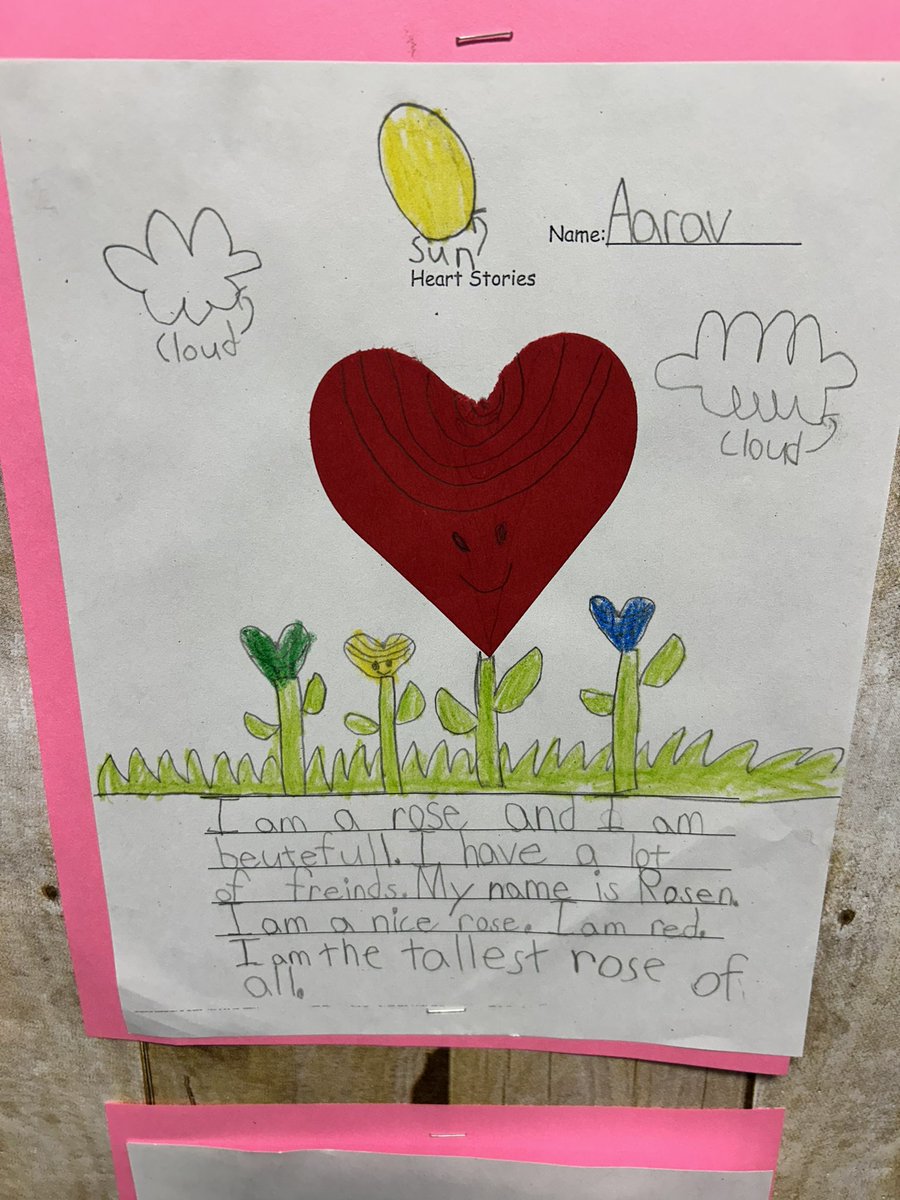 Name: Aarav
Sun
Heart Stories
Cloud
Cloud
I am a rose and I am
beutefull. I have a lot
of freinds. My name is Rosen.
I am a nice rose. I am red.
I am the tallest rose of
all.